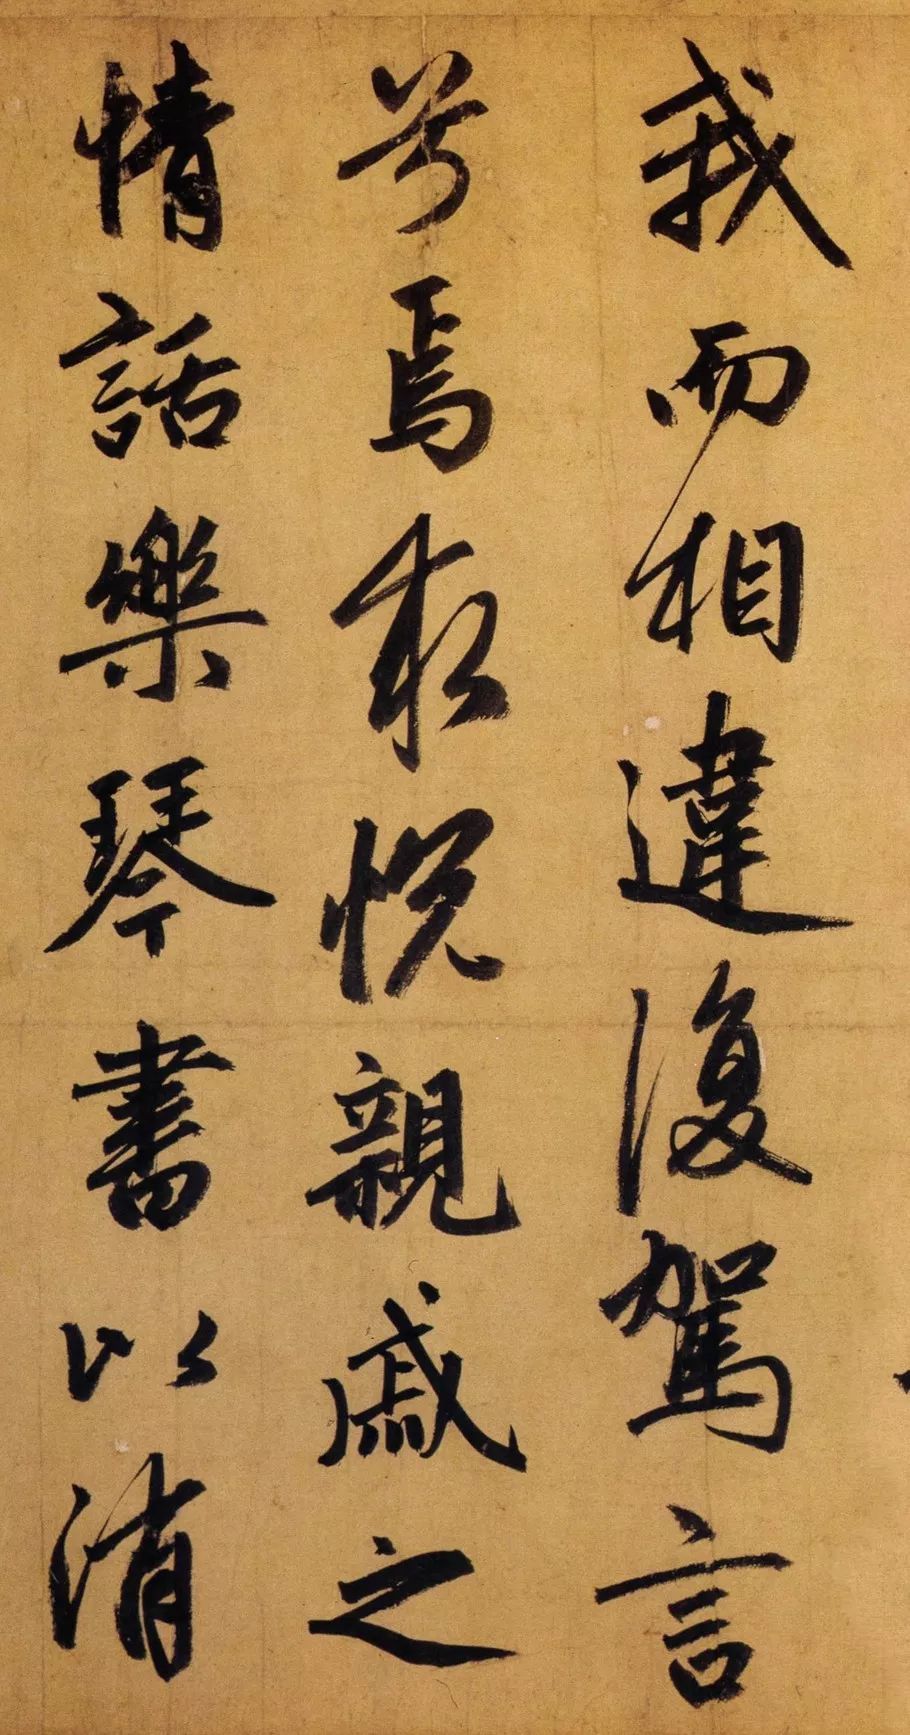 我而相違復駕言
兮焉求悦親戚之
情話樂琴書以消